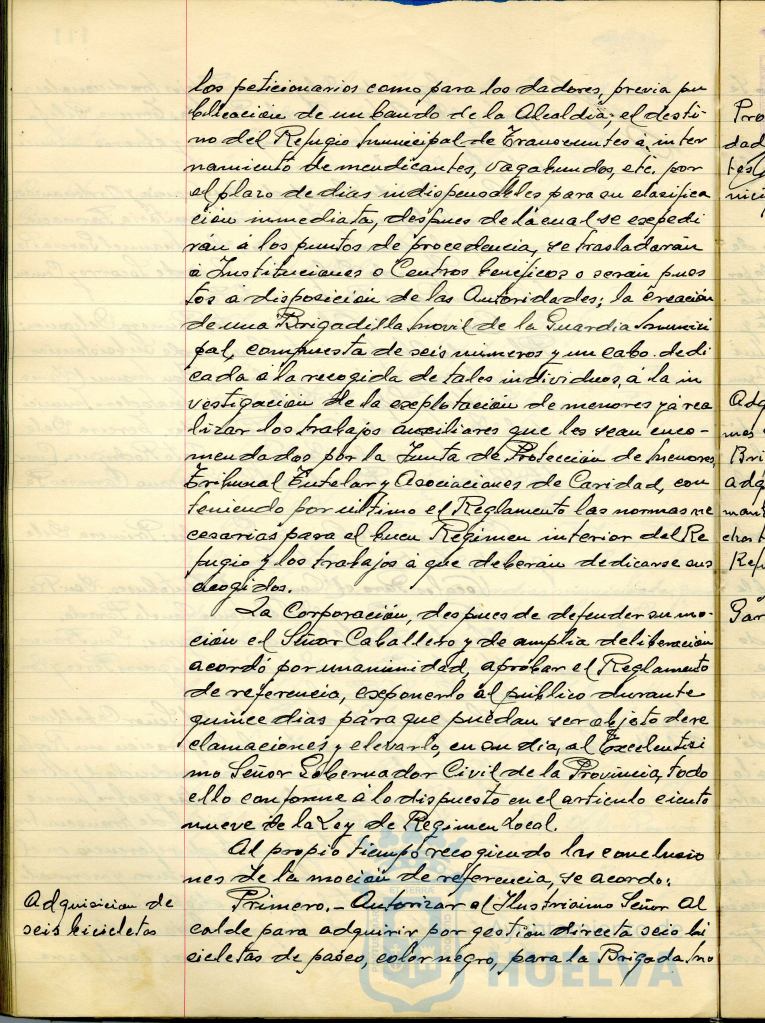 los peticionarios como para los dadores, previa pu
blicación de un bando de la Alcaldia; el desti-
no del Refugio Municipal de Transeuntes á inter
namiento de mendicantes, vagabundos, etc. por
el plazo de dias indispensables para su clasifica
ción inmediata, despues de la cual se expedi
rán á los puntos de procedencia, se trasladarán
a Instituciones o Centros beneficos o serán pues
tos a disposición de las Autoridades; la creación
de una Brigadilla Movil de la Guardia Munici
pal, compuesta de seis números y un cabo dedi
cada á la recogida de tales individuos, á la in
vestigación de la explotación de menores y á rea
lizar los trabajos auxiliares que les sean enco-
mendados por la Junta de Protección de Menores,
Tribunal Tutelar y Asociaciones de Caridad, con
teniendo por ultimo el Reglamento las normas ne
cesarias para el buen Regimen interior del Re
fugio y los trabajos á que deberán dedicarse sus
acogidos.
La Corporación, despues de defender su mo-
ción el Señor Caballero y de amplia deliberación
acordó por unanimidad, aprobar el Reglamento
de referencia, exponerlo al público durante
quince dias para que puedan ser objeto de re
clamaciones y elevarlo, en su dia, al Excelentisi
mo Señor Gobernador Civil de la Provincia, todo
ello conforme á lo dispuesto en el articulo ciento
nueve de la Ley de Regimen Local.
Al propio tiempo recogiendo las conclusio
nes de la moción de referencia, se acordo:
Adquisicion de
seis bicicletas
Primero.- Autorizar al Ilustrisimo Señor Al
calde para adquirir por gestión directa seis bi
cicletas de paseo, color negro, para la Brigada Mo
Pro
dad
nici
Adq
Bri
adq
Ref
HUELVA